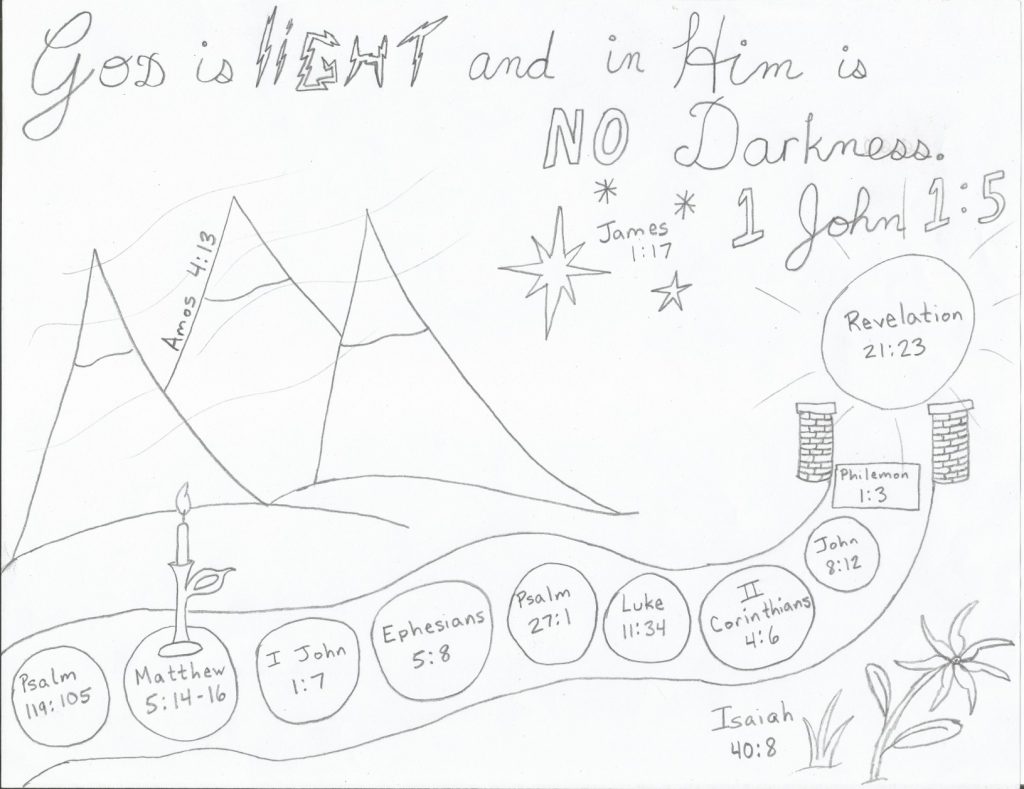 God is liGHT and in Him is
NO Darkness.
1 John 1:5
James
1:17
Amos 4:13
Revelation
21:23
Philemon
1:3
John
8:12
II
Corinthians
4:6
Luke
11:34
Psalm
27:1
Ephesians
5:8
I John
1:7
Matthew
5:14-16
Psalm
119:105
Isaiah
40:8